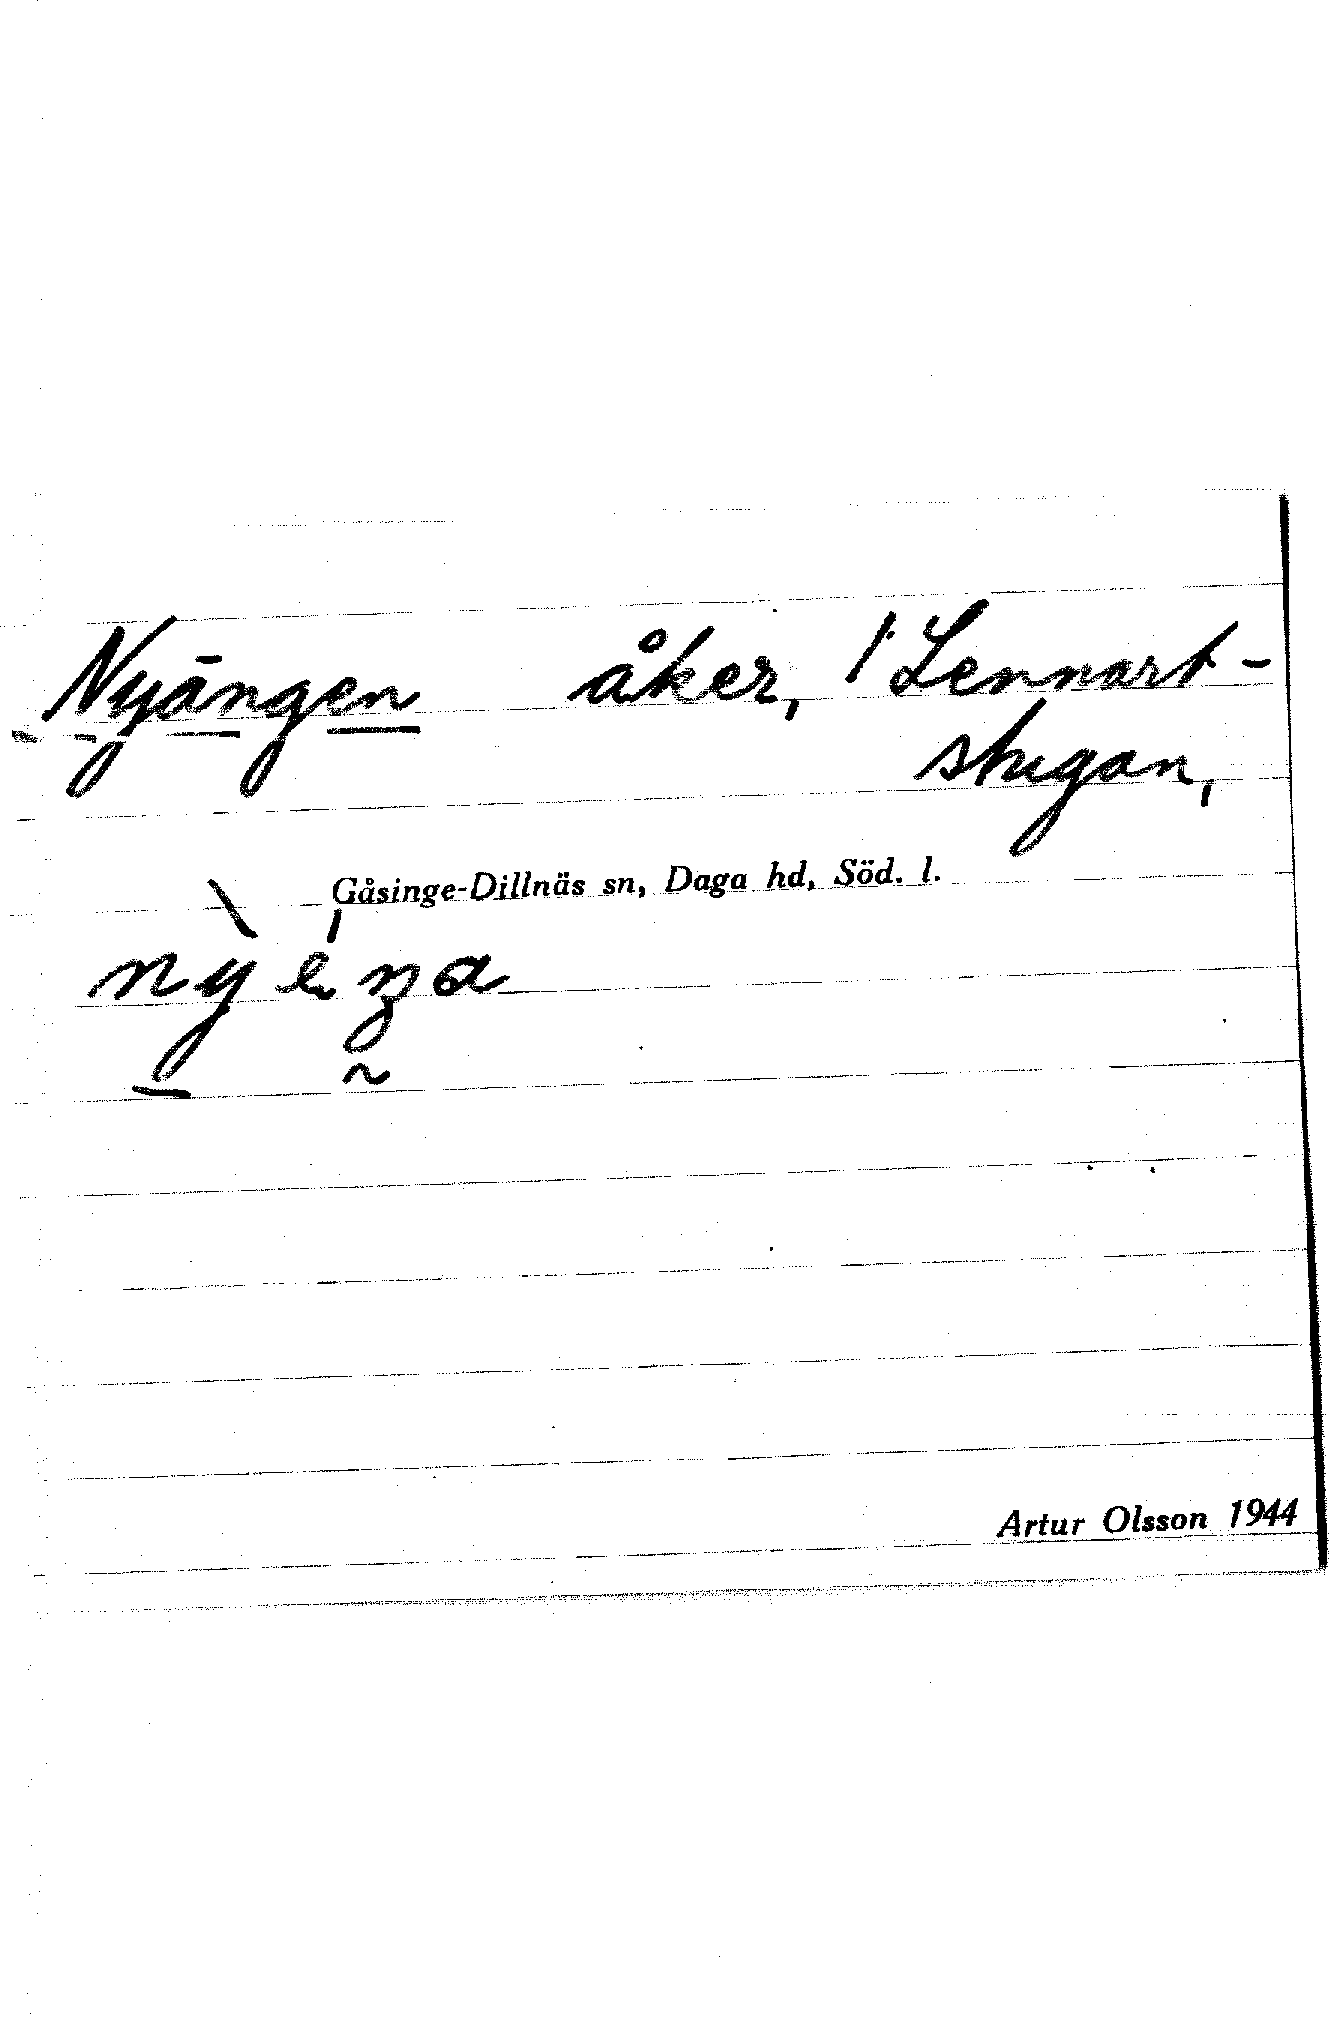 Nyängen åker, 1 Lennart-
stugan,
Gåsinge-Dillnäs sn, Daga hd, Söd. l.
Artur Olsson 1944